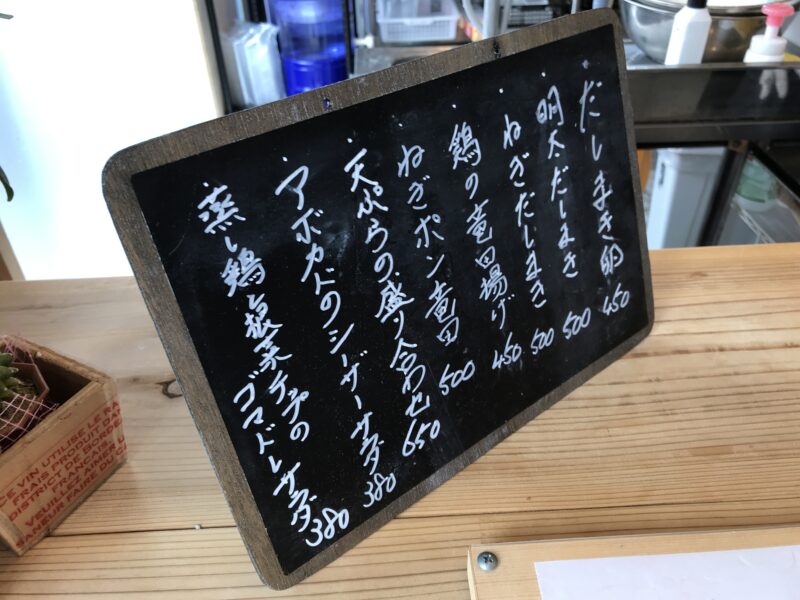 ・だしまき卵 450
・明太だしまき 500
・ねぎだしまき 500
・鶏の竜田揚げ 450
・ねぎポン竜田 500
・天ぷらの盛り合わせ 650
・アボカドのシーザーサラダ 380
・蒸し鶏と根菜チップの
ゴマドレサラダ 380